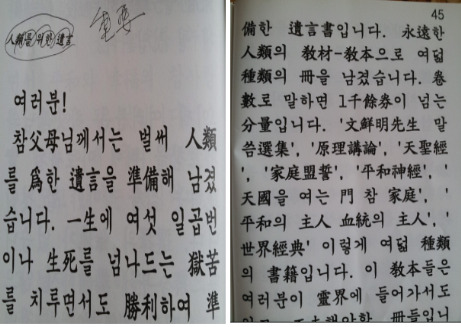 人類를 위한 遺言
重要
여러분!
참父母님께서는 벌써 人類
를 爲한 遺言을 準備해 남겼
습니다. 一生에 여섯 일곱번
이나 生死를 넘나드는 獄苦
를 치루면서도 勝利하여 準
45
備한 遺言書입니다. 永遠한
人類의 敎材-敎本으로 여덟
種類의 冊을 남겼습니다. 卷
數로 말하면 1千餘券이 넘는
分量입니다. '文鮮明先生 말
씀選集', '原理講論', '天聖經
', '家庭盟誓', '平和神經', '
天國을 여는 門 참 家庭', '
平和의 主人 血統의 主人', '
世界經典' 이렇게 여덟 種類
의 書籍입니다. 이 敎本들은
여러분이 靈界에 들어가서도